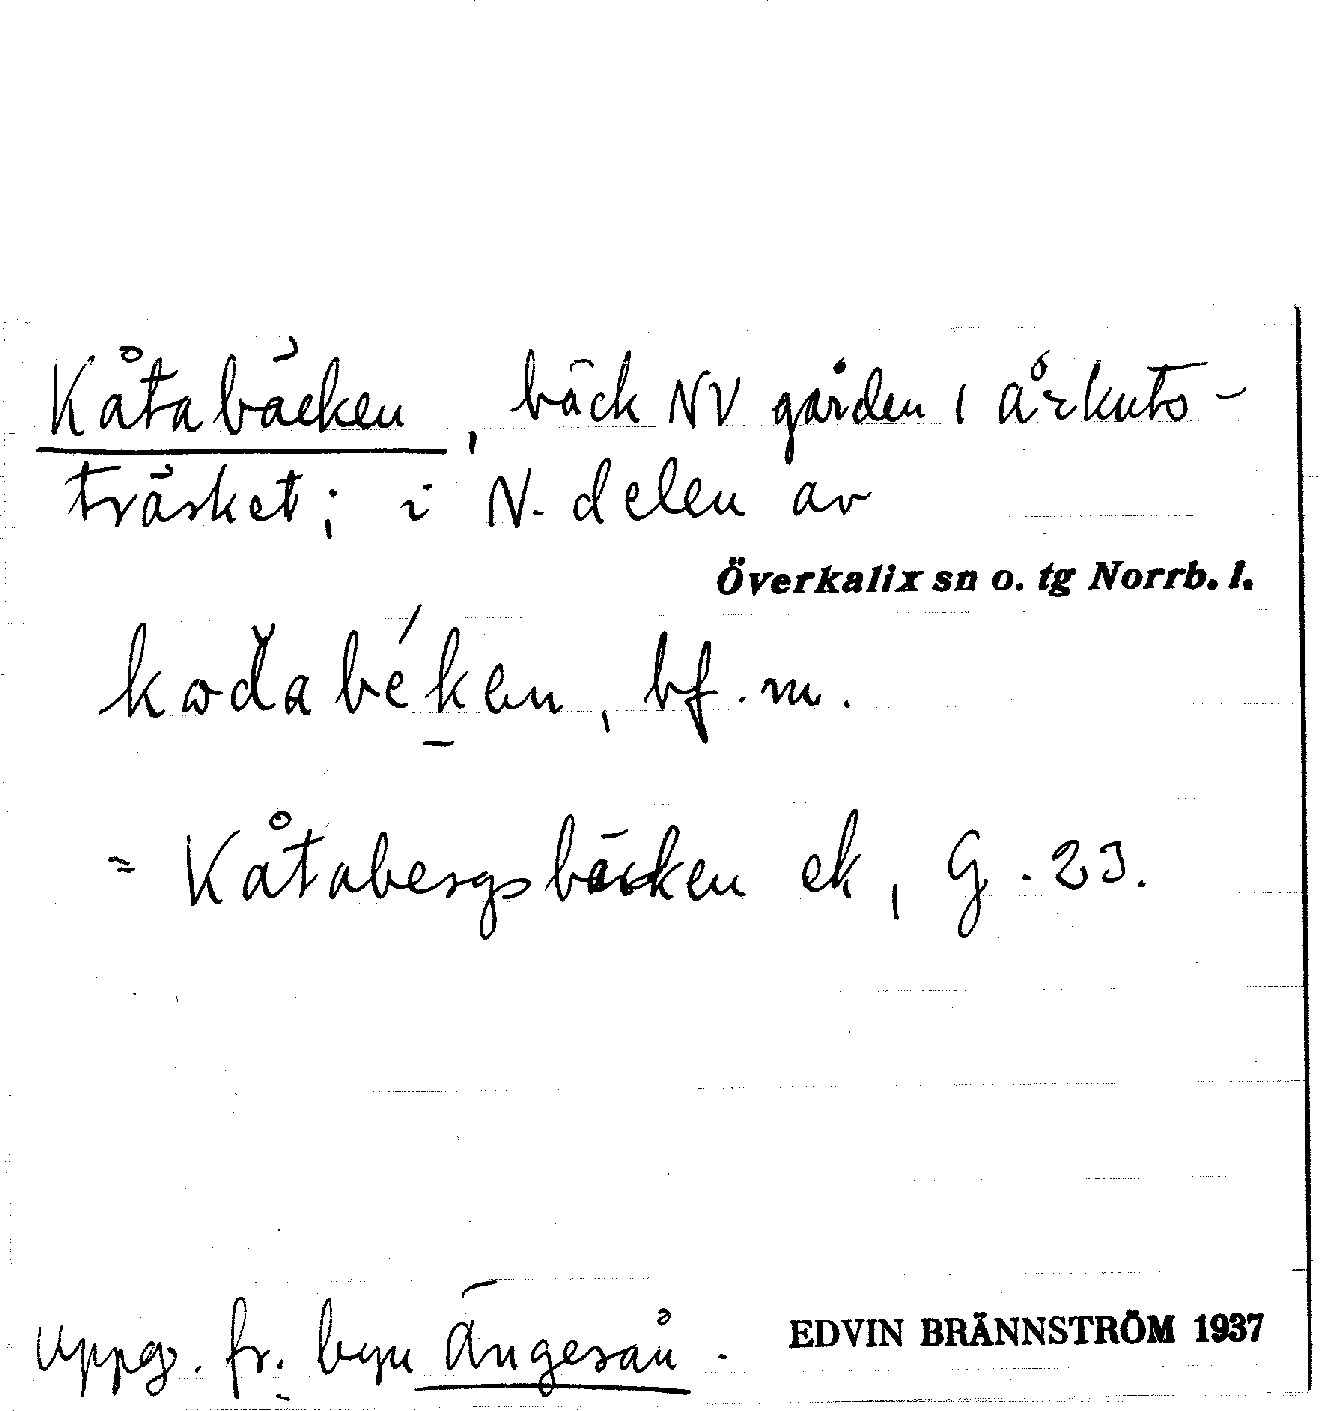 Kåtabäcken, bäck NV gården i Årkuts-
träsket; i N. delen av
Överkalix sn o. tg Norrb. l.
kωd̆abé́k̠en, bf. m.
= Kåtabergsbäcken ek, G. 23.
Uppg. fr. byn Ängeså.
EDVIN BRÄNNSTRÖM 1937